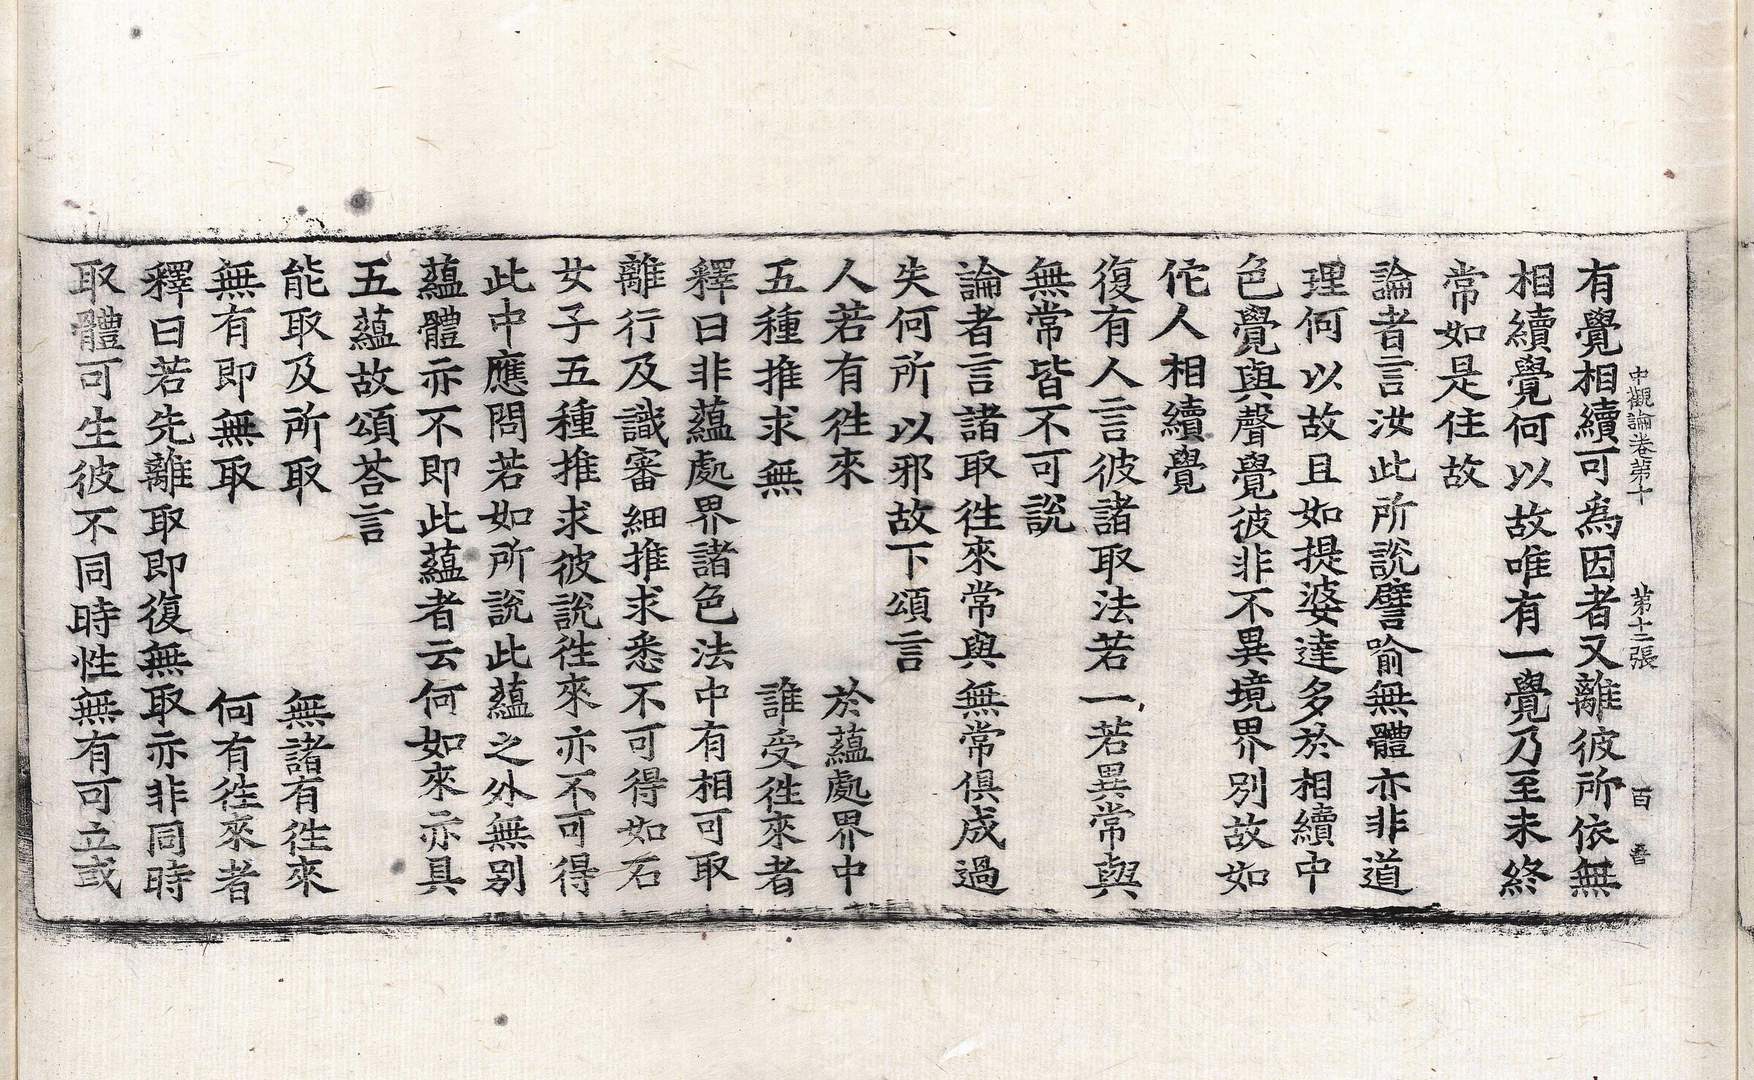 中觀論卷第十 第十二張 百 㫪
有覺相續可爲因者又離彼所依無
相續覺何以故唯有一覺乃至未終
常如是住故
論者言汝此所說譬喻無體亦非道
理何以故且如提婆達多於相續中
色覺與聲覺彼非不異境界別故如
佗人相續覺
復有人言彼諸取法若一若異常與
無常皆不可說
論者言諸取徃來常與無常俱成過
失何所以邪故下頌言
人若有徃來 於蘊處界中
五種推求無 誰受徃來者
釋曰非蘊處界諸色法中有相可取
離行及識審細推求悉不可得如石
女子五種推求彼說徃來亦不可得
此中應問若如所說此蘊之外無別
蘊體亦不即此蘊者云何如來亦具
五蘊故頌荅言
能取及所取 無諸有徃來
無有即無取 何有徃來者
釋曰若先離取即復無取亦非同時
取體可生彼不同時性無有可立或